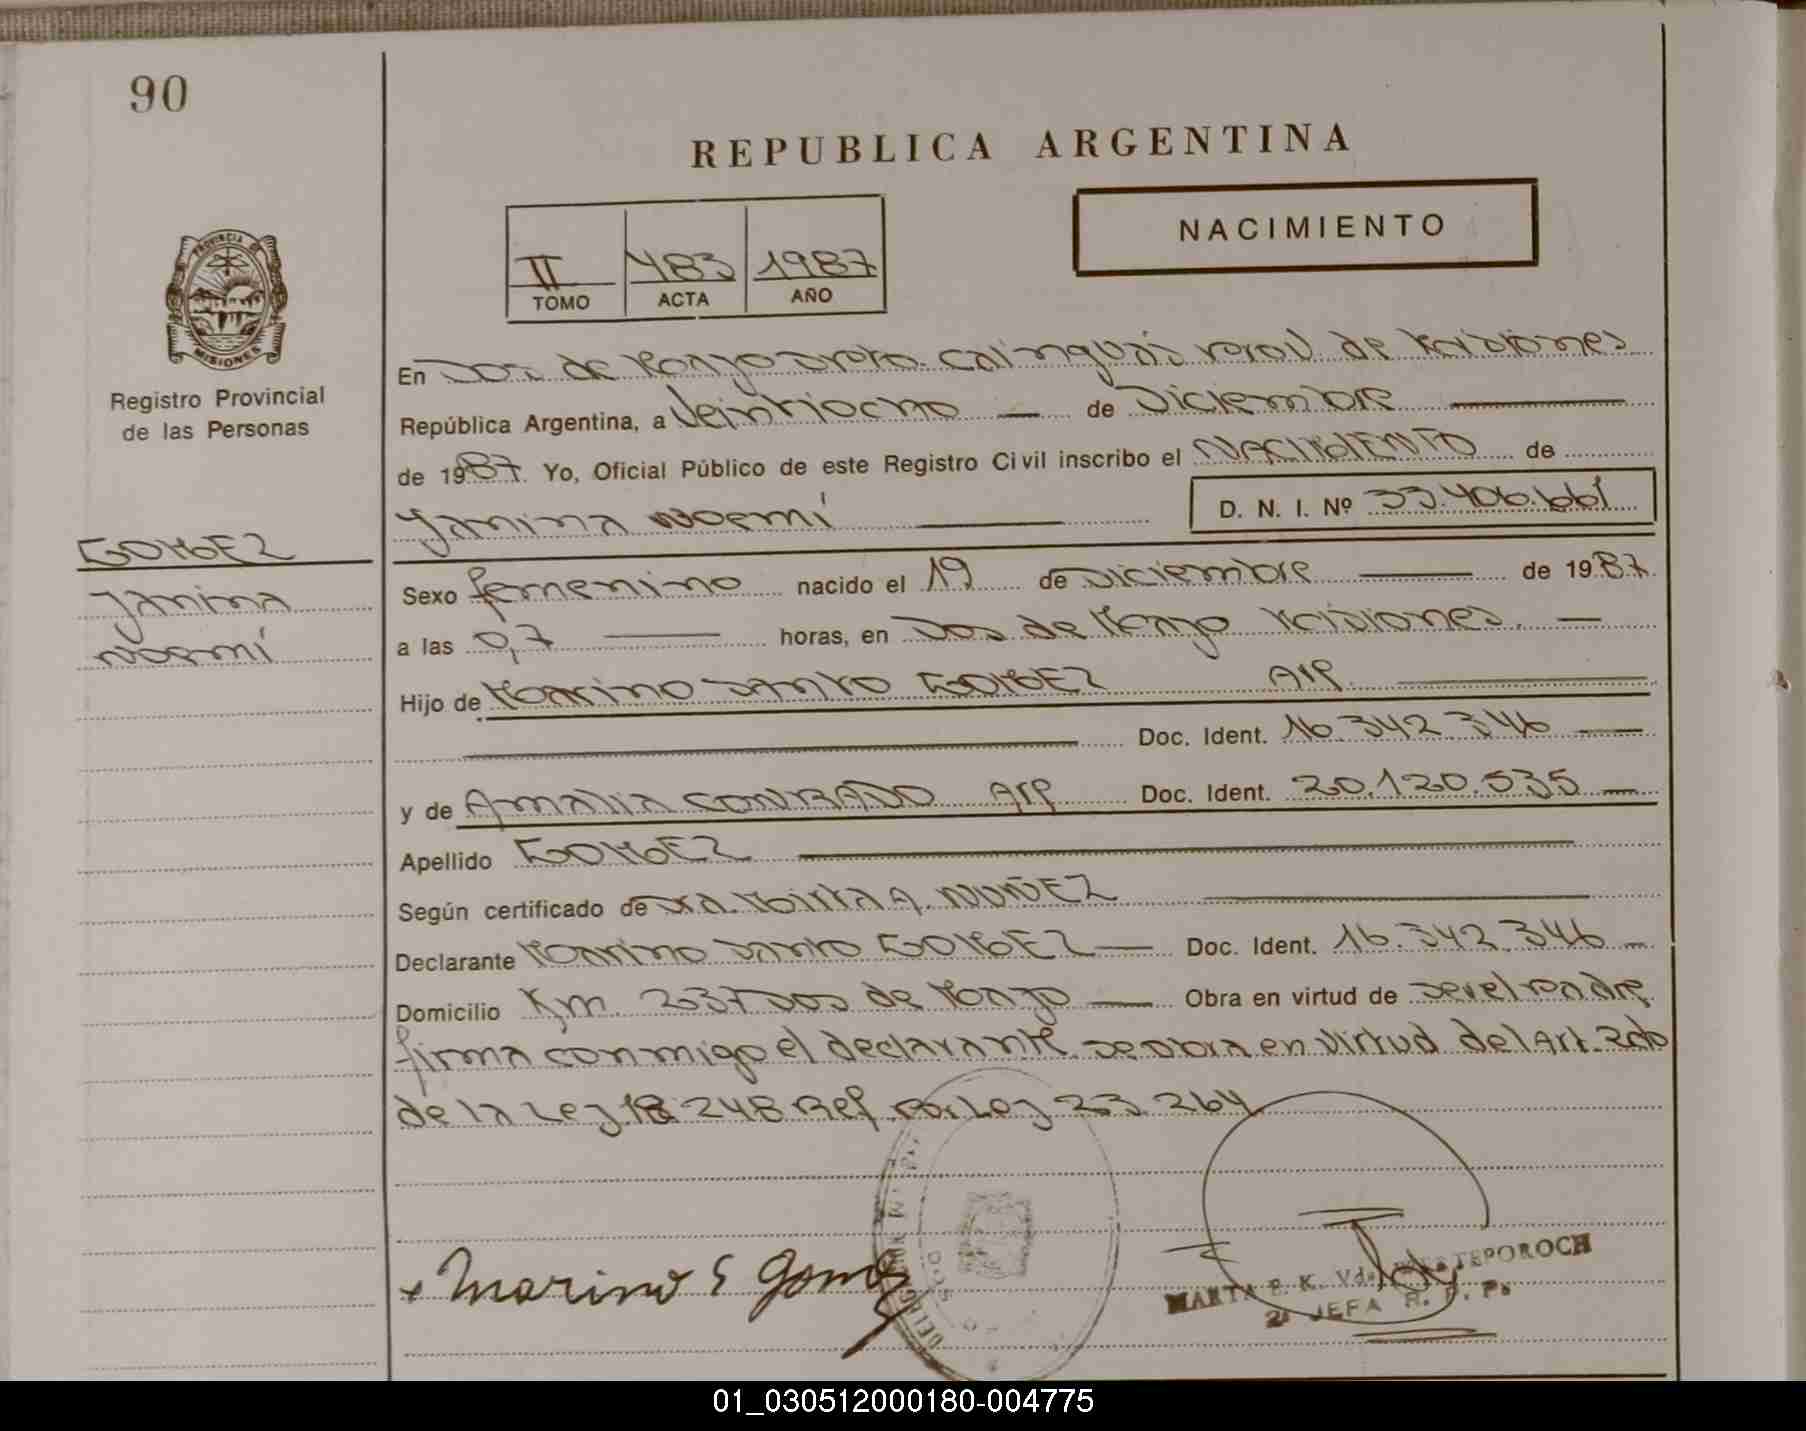 90
REPUBLICA ARGENTINA
NACIMIENTO
II 483 1987
TOMO ACTA AÑO
PROVINCIA DE
MISIONES
Registro Provincial
de las Personas
En Dos de Mayo Dpto. Cainguás Prov. de Misiones
República Argentina, a Veintiocho — de Diciembre —
de 1987. Yo, Oficial Público de este Registro Civil inscribo el NACIMIENTO de
Yanina Noemí — D. N. I. Nº 33.406.661
GOMEZ
Yanina
Noemí
Sexo femenino nacido el 19 de Diciembre — de 1987
a las 0,7 — horas, en Dos de Mayo Misiones. —
Hijo de Marino Santo GOMEZ Arg. —
— Doc. Ident. 16.342.346 —
y de Amalia CONRADO Arg Doc. Ident. 20.120.535 —
Apellido GOMEZ —
Según certificado de Dra. Mirta A. NUÑEZ —
Declarante Marino Santo GOMEZ — Doc. Ident. 16.342.346 —
Domicilio Km. 237 Dos de Mayo — Obra en virtud de Ser el Padre
firma conmigo el declarante. Se obra en virtud del Art. 2do
de la Ley 18 248 Ref por Ley 23.264
Marino S Gomez
MARTA E. K. Vda. TEPOROCH
2a JEFA R. P. P.
01_030512000180-004775